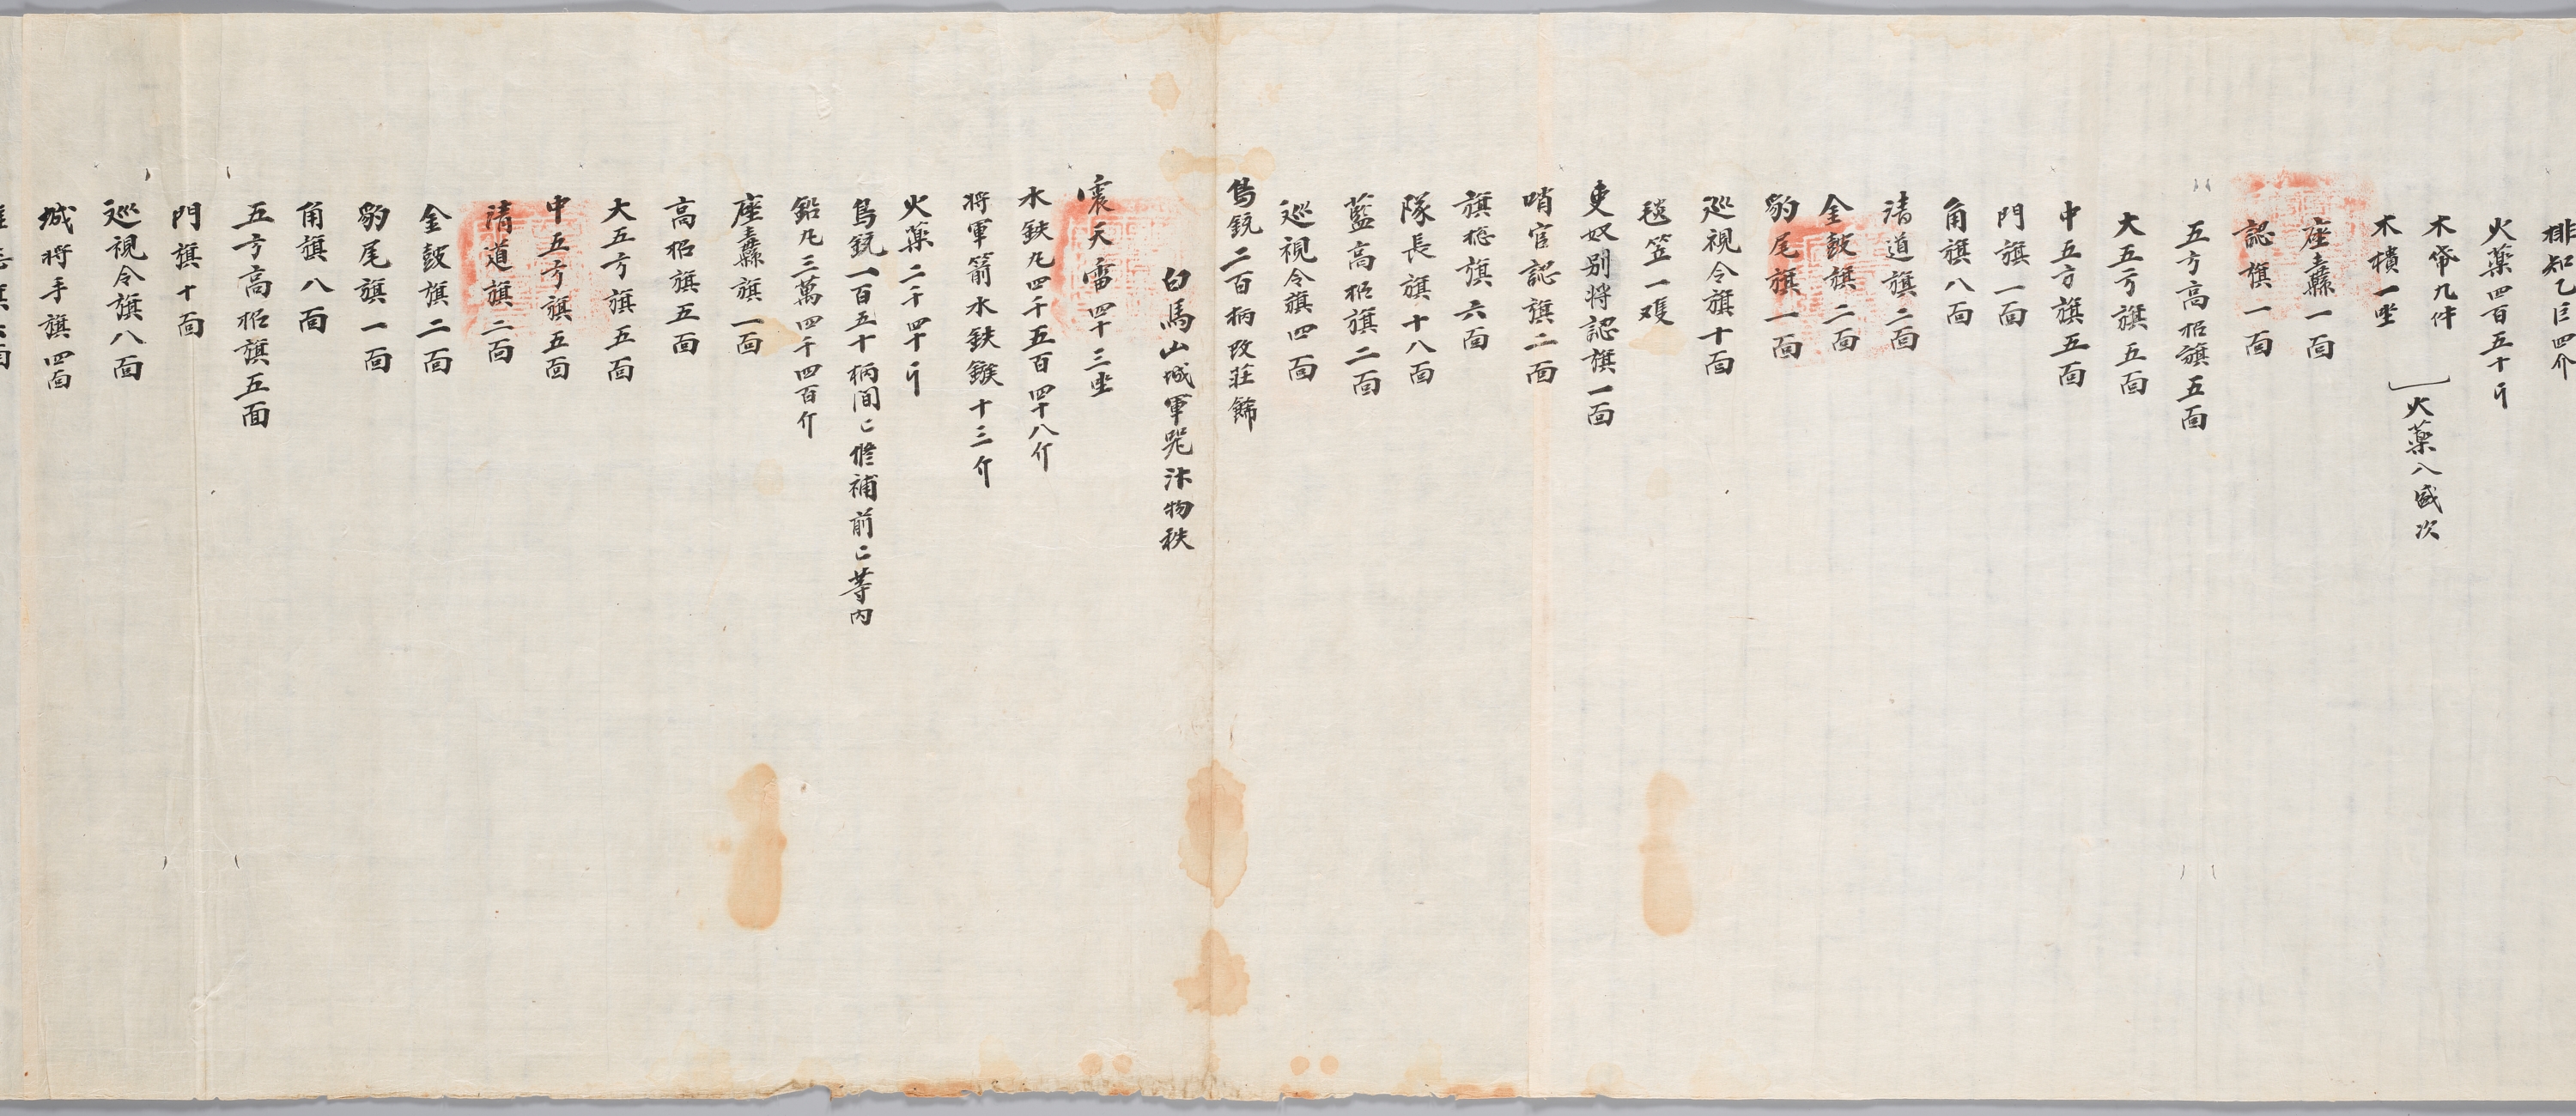 排知乙巨四介
火藥四百五十斤
木帒九件
木樻一坐
火藥八盛次
座纛一面
認旗一面
五方高招旗五面
大五方旗五面
中五方旗五面
門旗一面
角旗八面
清道旗二面
金鼓旗二面
豹尾旗一面
巡視令旗十面
毯笠一雙
吏奴別將認旗一面
哨官認旗二面
旗揔旗六面
隊長旗十八面
藍高招旗二面
巡視令旗四面
鳥銃二百柄改莊飾
白馬山城軍器汁物秩
震天雷四十三坐
水鉄丸四千五百四十八介
将軍箭水鉄鏃十三介
火藥二千四十斤
鳥銃一百五十柄間已修補前已等內
鉛丸三萬四千四百介
座纛旗一面
高招旗五面
大五方旗五面
中五方旗五面
清道旗二面
金鼓旗二面
豹尾旗一面
角旗八面
五方高招旗五面
門旗十面
巡視令旗八面
城將手旗四面